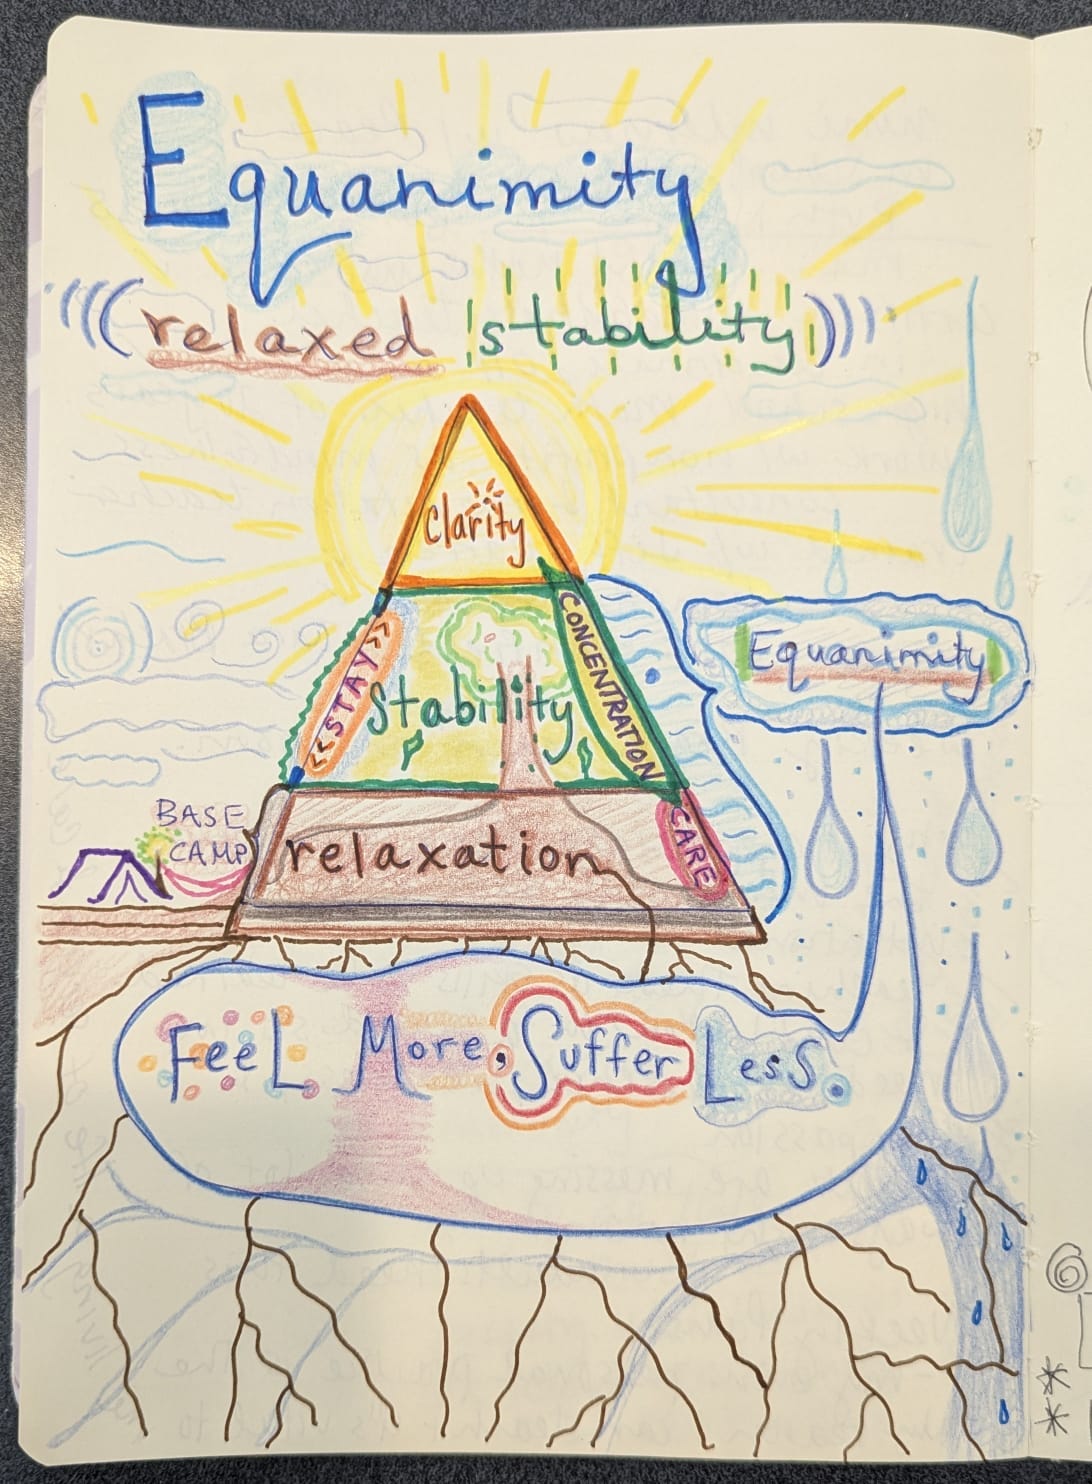 Equanimity
(((relaxed stability)))
Clarity
<<STAY>>
Stability
CONCENTRATION
Equanimity
BASE
CAMP
relaxation
CARE
FeeL More, Suffer LesS.